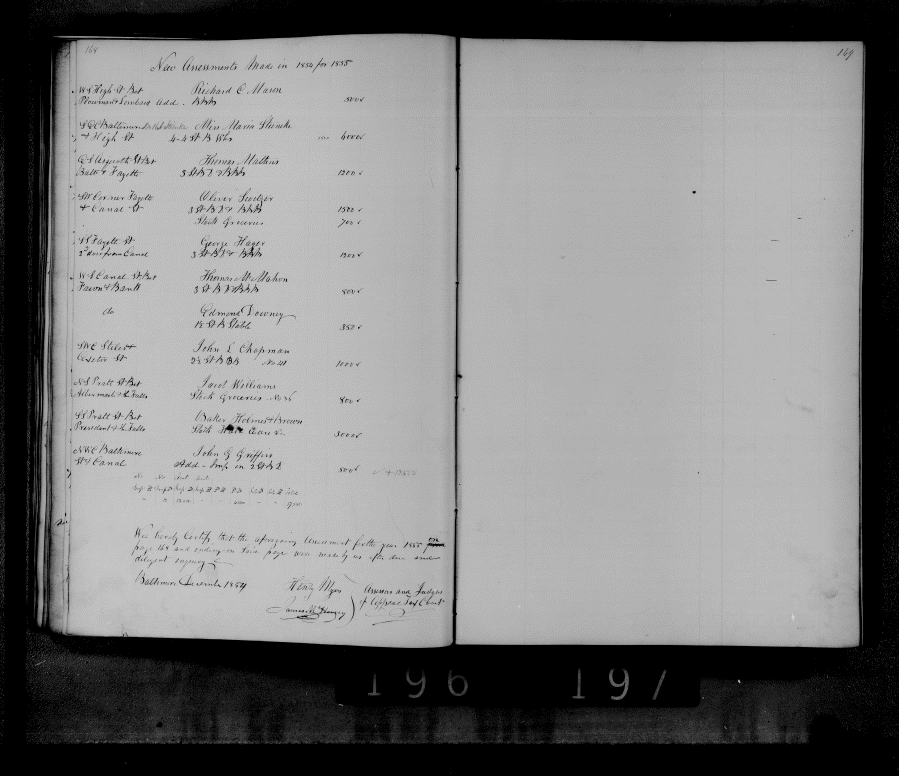 168
169
New Assessments Made in 1854 for 1855
W S High St Bet Richard C Mason
Plowman & Lombard Add. 500
Miss Maria
& High St 4-4 St B Whs 4000
Thomas
Balt & Fayette 3 St B D & B 1200
SW Corner Fayette Oliver
& Canal St 3 St B D & 1500
Stock Groceries 700
S S Fayette St George Hager
2 door from Canal 3 St B D & 1200
W S Canal St Bet Thomas McMahon
Fawn & 3 St B D & 800
do Edmond Downey
1½ St B Stable 350
SWC & John L Chapman
Exeter St 2½ St B No 41 1000
N S Pratt St Bet Jacob Williams
Albermarle & the Falls Stock Groceries No 800
S S Pratt St Bet Baker Holmes & Brown
President & the Falls Stock 3000
NWC Baltimore John G Griffers
St & Canal Add - Imp in 2 St B D 500
Wee hereby Certify, that the aforegoing Assessment for the year 1855 on
page 164 and ending on this page were made by us after due and
diligent enquiry
Baltimore December 1854 Henry Myers Assessors and Judges
James of Appeal Tax Court
196 197